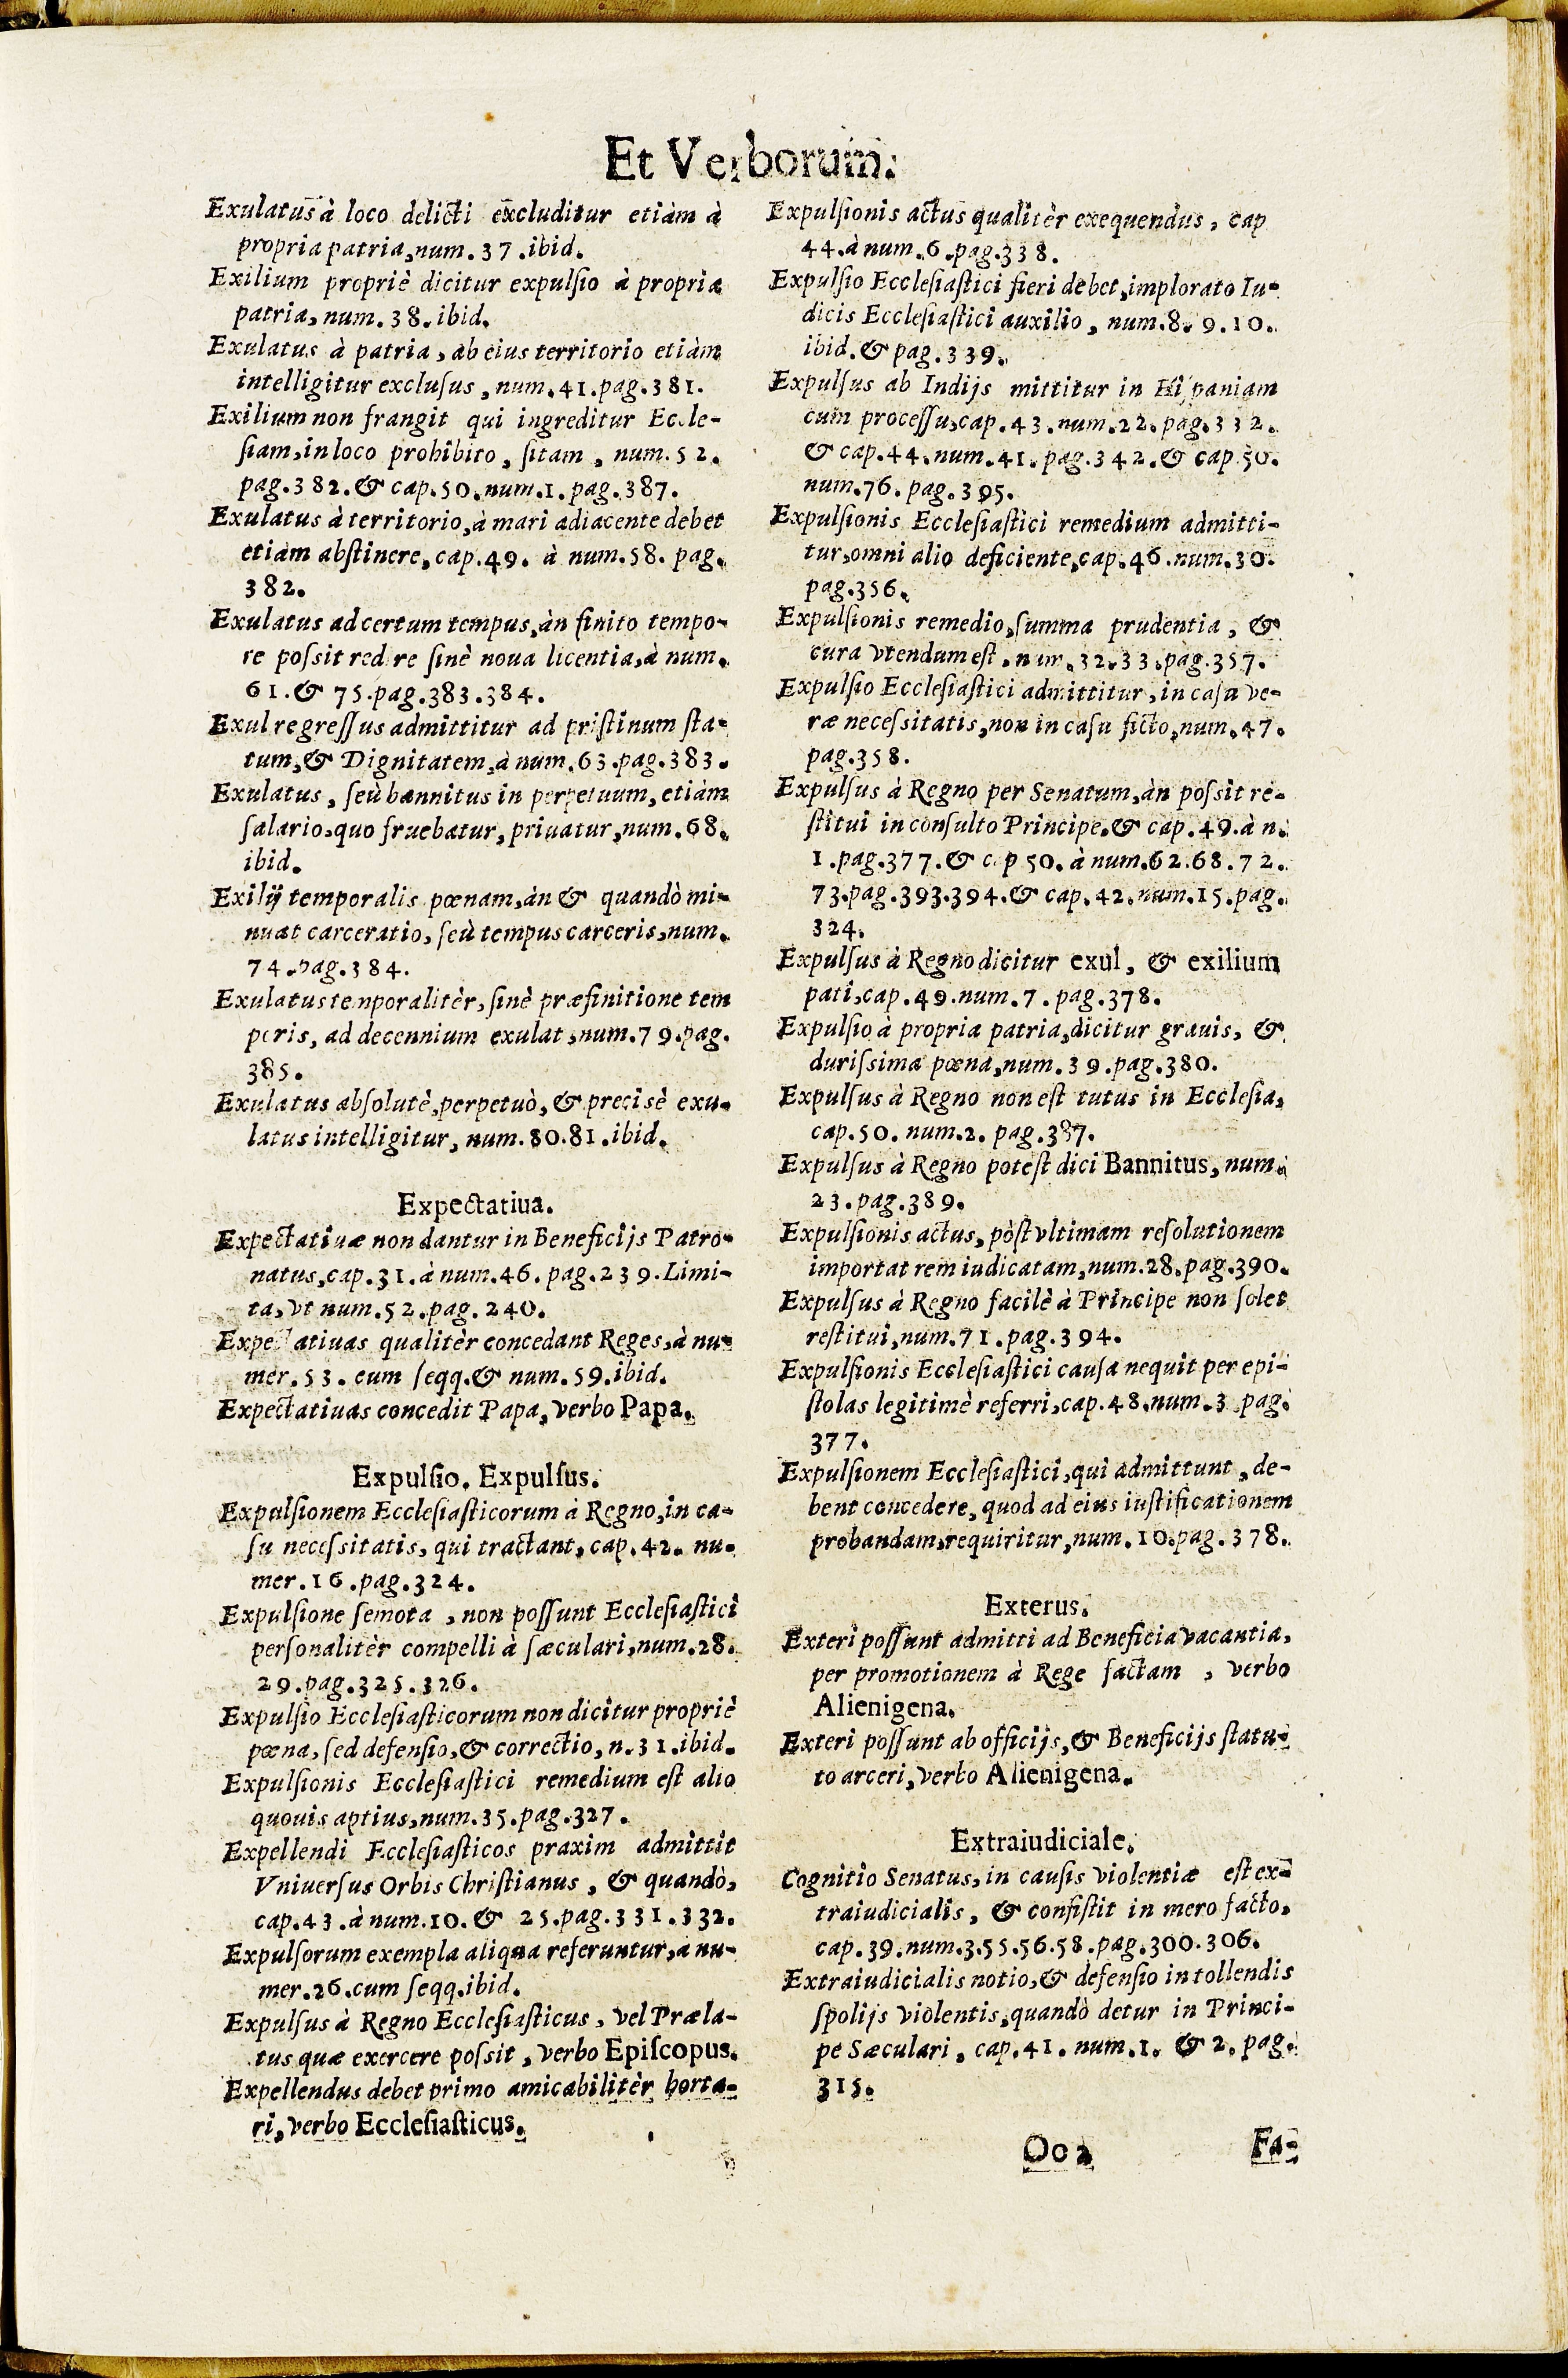 Et Verborum.
Exulatus à loco delicti excluditur etiàm à
propria patria, num. 37. ibid.
Exilium propriè dicitur expulſio à propria
patria, num. 38. ibid.
Exulatus à patria, ab eius territorio etiàm
intelligitur excluſus, num. 41. pag. 381.
Exilium non frangit qui ingreditur Eccle-
ſiam, in loco prohibito, ſitam, num. 52.
pag. 382. & cap. 50. num. 1. pag. 387.
Exulatus à territorio, à mari adiacente debet
etiàm abſtinere, cap. 49. à num. 58. pag.
382.
Exulatus ad certum tempus, àn finito tempo-
re poſsit redire ſinè noua licentia, à num.
61. & 75. pag. 383. 384.
Exul regreſſus admittitur ad priſtinum ſta-
tum, & Dignitatem, à num. 63. pag. 383.
Exulatus, ſeù bannitus in perpetuum, etiàm
ſalario, quo fruebatur, priuatur, num. 68.
ibid.
Exilij temporalis pœnam, àn & quandò mi-
nuat carceratio, ſeù tempus carceris, num.
74. pag. 384.
Exulatus temporalitèr, ſinè præfinitione tem
poris, ad decennium exulat, num. 79. pag.
385.
Exulatus abſolutè, perpetuò, & precisè exu-
latus intelligitur, num. 80. 81. ibid.
Expectatiua.
Expectatiuæ non dantur in Beneficijs Patro-
natus, cap. 31. à num. 46. pag. 239. Limi-
ta, vt num. 52. pag. 240.
Expectatiuas qualitèr concedant Reges, à nu-
mer. 53. cum ſeqq. & num. 59. ibid.
Expectatiuas concedit Papa, verbo Papa.
Expulſio. Expulſus.
Expulſionem Eccleſiaſticorum à Regno, in ca-
ſu neceſsitatis, qui tractant, cap. 42. nu-
mer. 16. pag. 324.
Expulſione ſemota, non poſſunt Eccleſiaſtici
perſonalitèr compelli à ſæculari, num. 28.
29. pag. 325. 326.
Expulſio Eccleſiaſticorum non dicitur propriè
pœna, ſed defenſio, & correctio, n. 31. ibid.
Expulſionis Eccleſiaſtici remedium eſt alio
quouis aptius, num. 35. pag. 327.
Expellendi Eccleſiaſticos praxim admittit
Vniuerſus Orbis Chriſtianus, & quandò,
cap. 43. à num. 10. & 25. pag. 331. 332.
Expulſorum exempla aliqua referuntur, a nu-
mer. 26. cum ſeqq. ibid.
Expulſus à Regno Eccleſiaſticus, vel Præla-
tus quæ exercere poſsit, verbo Epiſcopus.
Expellendus debet primo amicabilitèr horta-
ri, verbo Eccleſiaſticus.
Expulſionis actus qualitèr exequendus, cap
44. à num. 6. pag. 338.
Expulſio Eccleſiaſtici fieri debet, implorato Iu-
dicis Eccleſiaſtici auxilio, num. 8. 9. 10.
ibid. & pag. 339.
Expulſus ab Indijs mittitur in Hiſpaniam
cum proceſſu, cap. 43. num. 22. pag. 332.
& cap. 44. num. 41. pag. 342. & cap. 50.
num. 76. pag. 395.
Expulſionis Eccleſiaſtici remedium admitti-
tur, omni alio deficiente, cap. 46. num. 30.
pag. 356.
Expulſionis remedio, ſumma prudentia, &
cura vtendum eſt, num. 32. 33. pag. 357.
Expulſio Eccleſiaſtici admittitur, in caſu ve-
ræ neceſsitatis, non in caſu ficto, num. 47.
pag. 358.
Expulſus à Regno per Senatum, àn poſsit re-
ſtitui inconſulto Principe. & cap. 49. à n.
1. pag. 377. & cap 50. à num. 62. 68. 72.
73. pag. 393. 394. & cap. 42. num. 15. pag.
324.
Expulſus à Regno dicitur exul, & exilium
pati, cap. 49. num. 7. pag. 378.
Expulſio à propria patria, dicitur grauis, &
duriſsima pœna, num. 39. pag. 380.
Expulſus à Regno non eſt tutus in Eccleſia,
cap. 50. num. 2. pag. 387.
Expulſus à Regno poteſt dici Bannitus, num.
23. pag. 389.
Expulſionis actus, pòſt vltimam reſolutionem
importat rem iudicatam, num. 28. pag. 390.
Expulſus à Regno facilè à Principe non ſolet
reſtitui, num. 71. pag. 394.
Expulſionis Eccleſiaſtici cauſa nequit per epi-
ſtolas legitimè referri, cap. 48. num. 3. pag.
377.
Expulſionem Eccleſiaſtici, qui admittunt, de-
bent concedere, quod ad eius iuſtificationem
probandam, requiritur, num. 10. pag. 378.
Exterus.
Exteri poſſunt admitti ad Beneficia vacantia,
per promotionem à Rege factam, verbo
Alienigena.
Exteri poſſunt ab officijs, & Beneficijs ſtatu-
to arceri, verbo Alienigena.
Extraiudiciale.
Cognitio Senatus, in cauſis violentiæ eſt ex-
traiudicialis, & conſiſtit in mero facto,
cap. 39. num. 3. 55. 56. 58. pag. 300. 306.
Extraiudicialis notio, & defenſio in tollendis
ſpolijs violentis, quandò detur in Princi-
pe Sæculari, cap. 41. num. 1. & 2. pag.
315.
Oo 2 Fa-